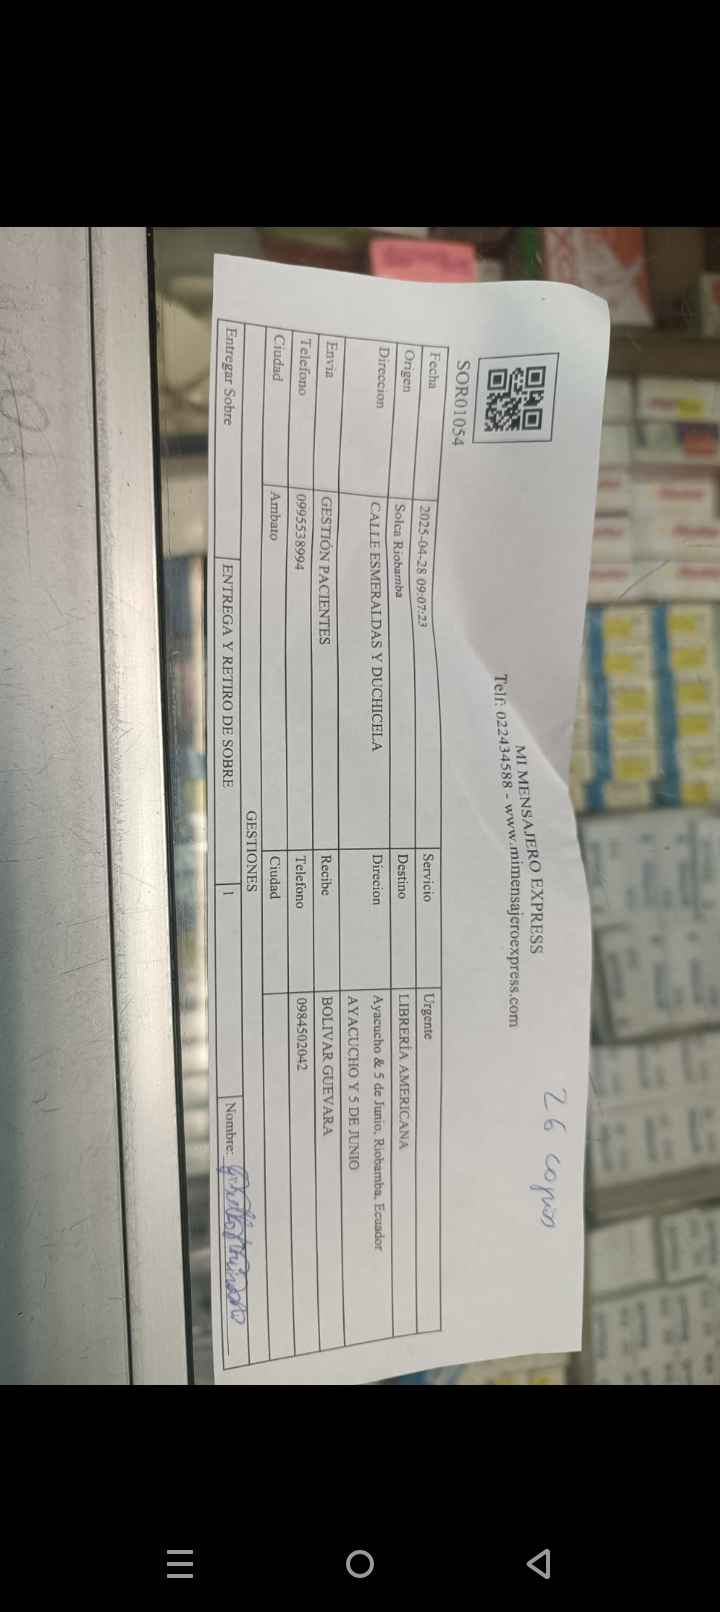 MI MENSAJERO EXPRESS
Telf: 022434588 - www.mimensajeroexpress.com
26 copias
SOR01054
Fecha 2025-04-28 09:07:23 Servicio Urgente
Origen Solca Riobamba Destino LIBRERÍA AMERICANA
Direccion CALLE ESMERALDAS Y DUCHICELA Direcion Ayacucho & 5 de Junio, Riobamba, Ecuador
AYACUCHO Y 5 DE JUNIO
Envia GESTIÓN PACIENTES Recibe BOLIVAR GUEVARA
Telefono 0995538994 Telefono 0984502042
Ciudad Ambato Ciudad
GESTIONES
Entregar Sobre ENTREGA Y RETIRO DE SOBRE 1 Nombre: